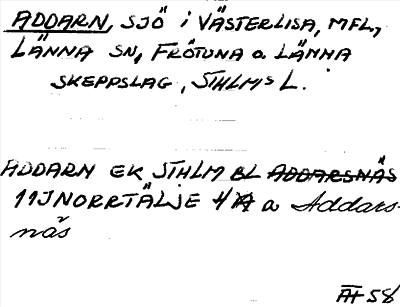 ADDARN, SJÖ i VÄSTERLISA, MFL,
LÄNNA SN, FRÖTUNA o. LÄNNA
SKEPPSLAG, STHLMS L.
ADDARN EK STHLM BL ADDARSNÄS
11J NORRTÄLJE 4 a Addars-
näs
ÄT 58